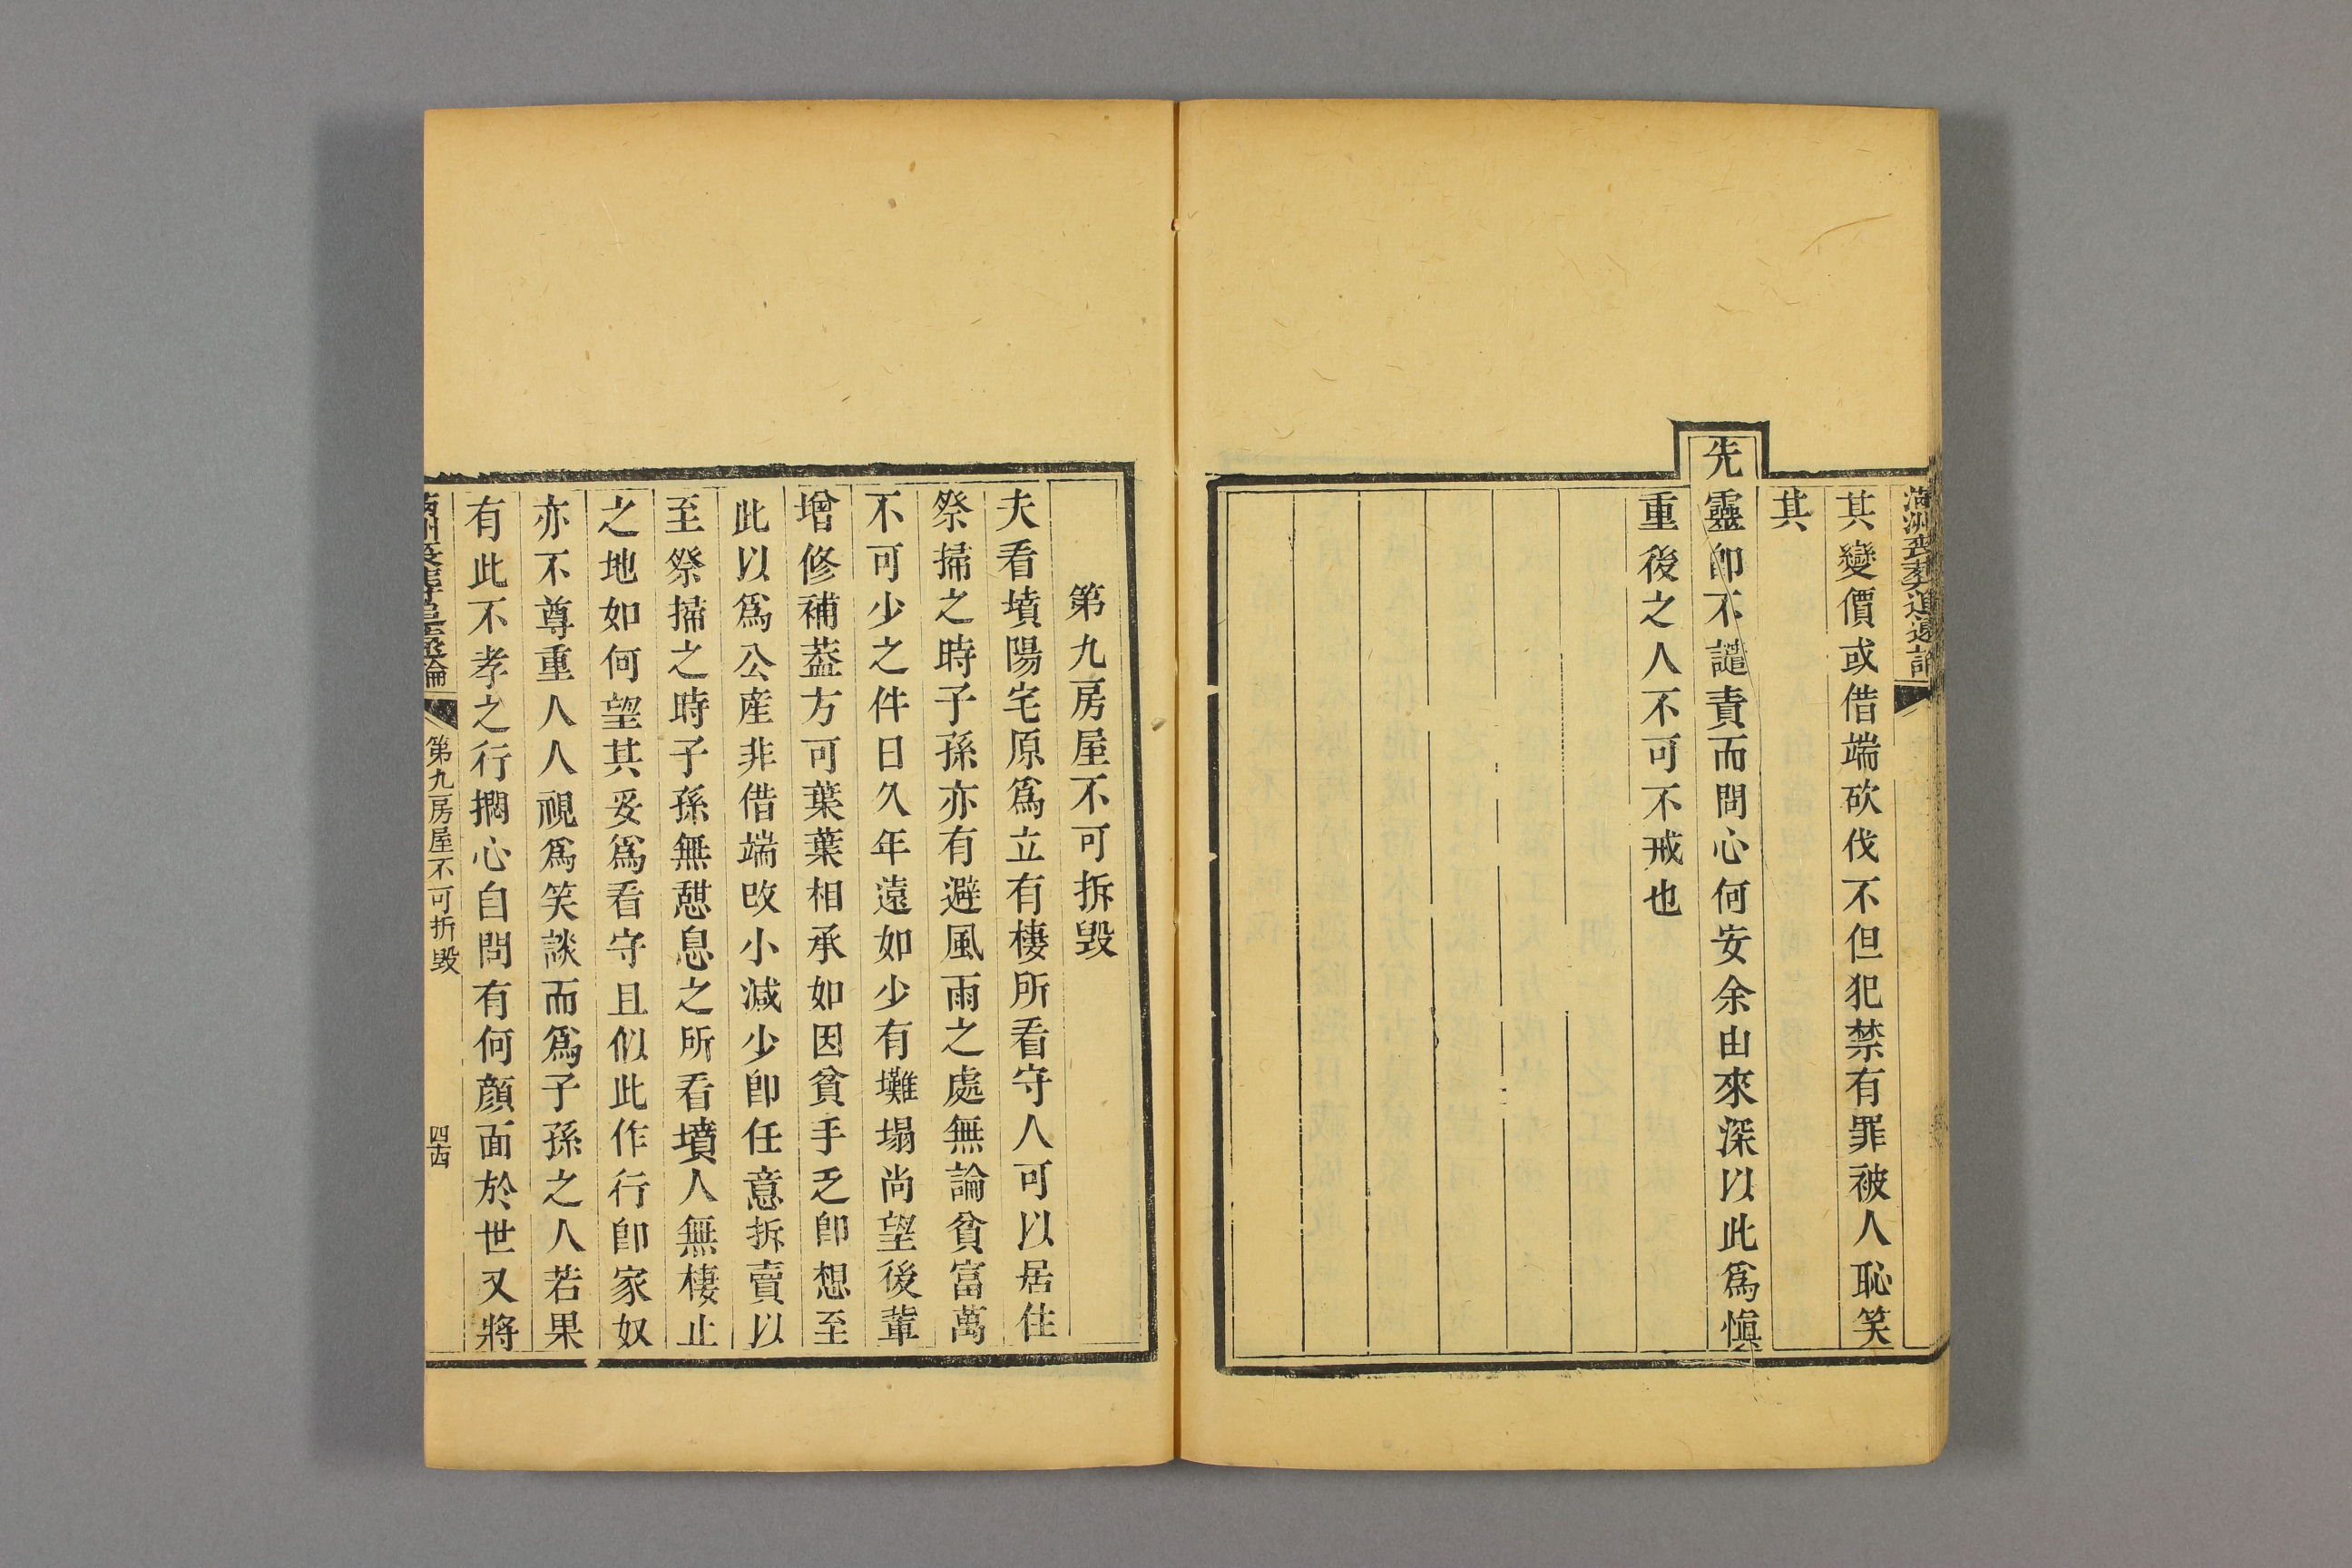 其變價或借端砍伐不但犯禁有罪被人恥笑
其
先靈卽不譴責而問心何安余由來深以此爲愼
重後之人不可不戒也
第九房屋不可拆毀
夫看墳陽宅原爲立有棲所看守人可以居住
祭掃之時子孫亦有避風雨之處無論貧富萬
不可少之件日久年遠如少有壩塌尚望後輩
增修補葢方可葉葉相承如因貧手乏卽想至
此以爲公産非借端改小減少卽任意拆賣以
至祭掃之時子孫無憇息之所看墳人無棲止
之地如何望其妥爲看守且似此作行卽家奴
亦不尊重人人視爲笑談而爲子孫之人若果
有此不孝之行捫心自問有何顔面於世又將
滿洲喪葬追遠論
第九房屋不可拆毀
四四